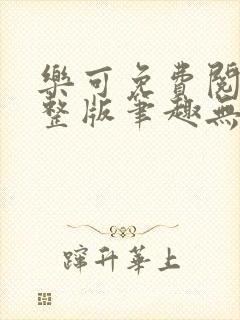 樂可免費閱
整版筆趣無
蹿升華上